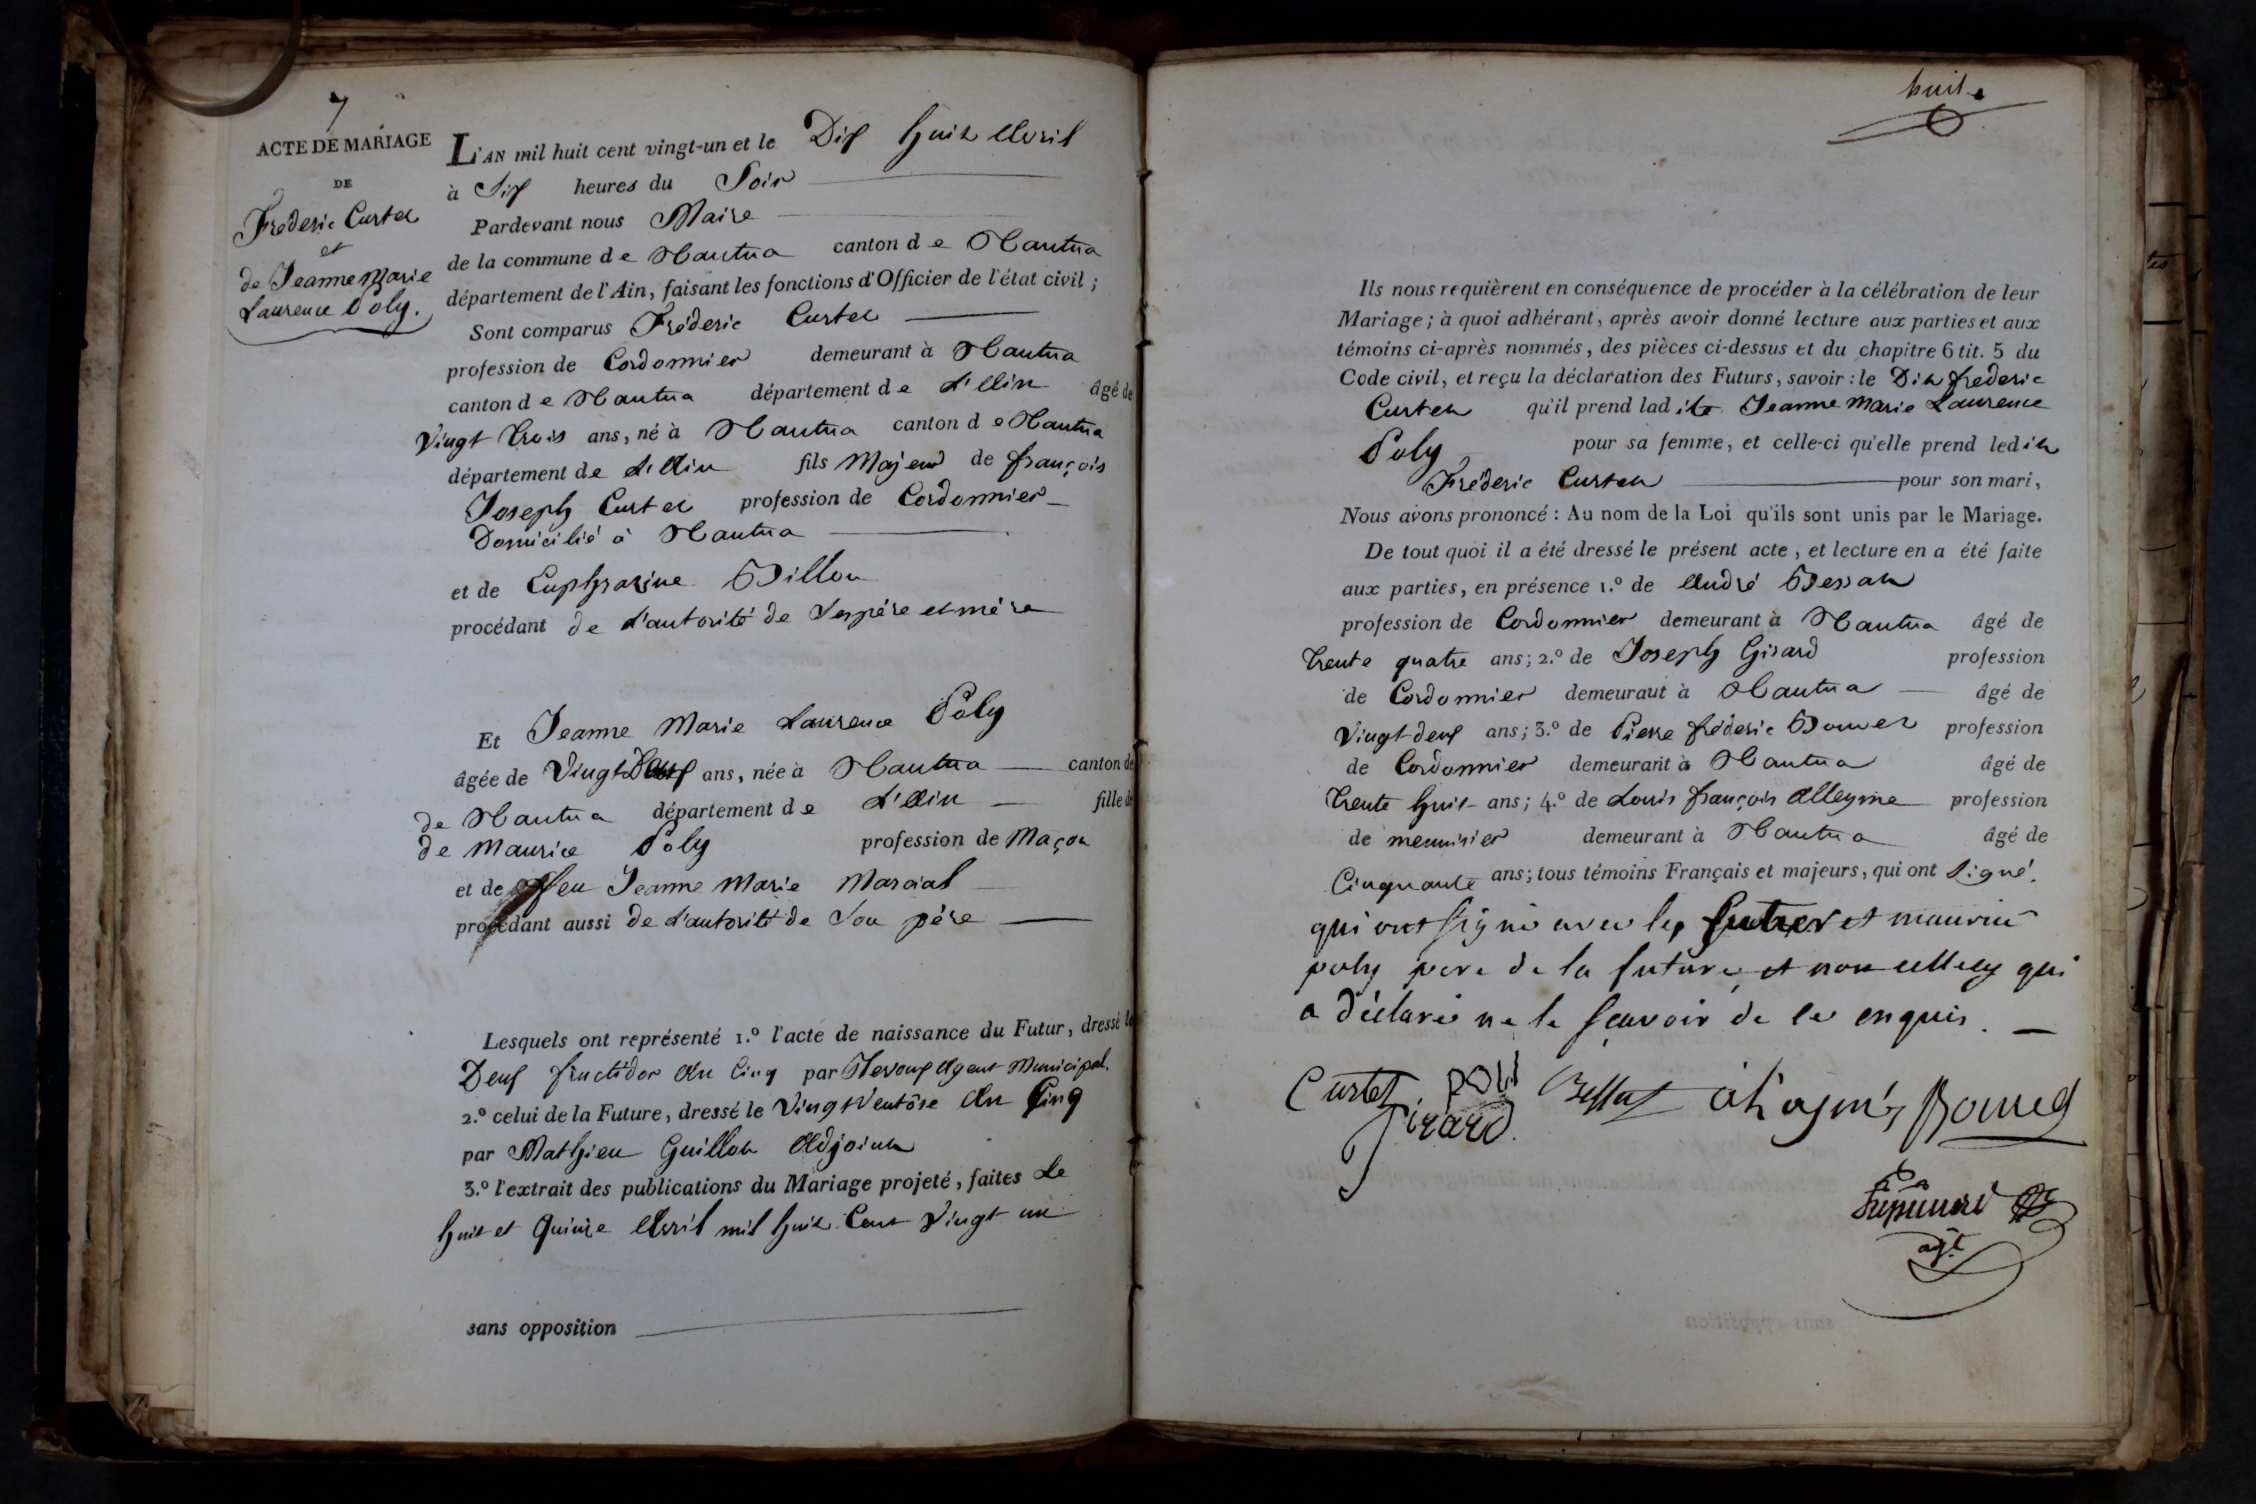 7
ACTE DE MARIAGE
DE
Fréderic Curtet
et
de Jeanne Marie
Laurence Poly.
L'AN mil huit cent vingt-un et le Dix huit Avril
à Six heures du Soir
Pardevant nous Maire
de la commune de Nantua canton de Nantua
département de l'Ain, faisant les fonctions d'Officier de l'état civil ;
Sont comparus Fréderic Curtet
profession de Cordonnier demeurant à Nantua
canton de Nantua département de L'Ain âgé de
Vingt trois ans, né à Nantua canton de Nantua
département de L'Ain fils Majeur de françois
Joseph Curtet profession de Cordonnier
Domicilié à Nantua
et de Euphrasine Billon
procédant de L'autorité de Ses père et mère
Et Jeanne Marie Laurence Poly
âgée de Vingt ans, née à Nantua canton de
de Nantua département de L'Ain fille de
de Maurice Poly profession de Maçon
et de feu Jeanne Marie Marcial
procédant aussi de L'autorité de Son père
Lesquels ont représenté 1.º l'acte de naissance du Futur, dressé le
Deux fructidor An Cinq par Agent Municipal.
2.º celui de la Future, dressé le Vingt Ventôse An Cinq
par Mathieu Guillot Adjoint
3.º l'extrait des publications du Mariage projeté, faites Le
huit et Quinze Avril mil huit Cent Vingt un
sans opposition
huit.
Ils nous requièrent en conséquence de procéder à la célébration de leur
Mariage ; à quoi adhérant, après avoir donné lecture aux parties et aux
témoins ci-après nommés, des pièces ci-dessus et du chapitre 6 tit. 5 du
Code civil, et reçu la déclaration des Futurs, savoir : le Dit frederic
Curtet qu'il prend ladite Jeanne Marie Laurence
Poly pour sa femme, et celle-ci qu'elle prend ledit
Fréderic Curtet pour son mari,
Nous avons prononcé : Au nom de la Loi qu'ils sont unis par le Mariage.
De tout quoi il a été dressé le présent acte, et lecture en a été faite
aux parties, en présence 1.º de André Bessat
profession de Cordonnier demeurant à Nantua âgé de
trente quatre ans ; 2.º de Joseph Girard profession
de Cordonnier demeuraut à Nantua âgé de
Vingt deux ans ; 3.º de Pierre fréderic Bonnet profession
de Cordonnier demeurant à Nantua âgé de
trente huit ans ; 4.º de Louis françois Alleyme profession
de menuisier demeurant à Nantua âgé de
Cinquante ans ; tous témoins Français et majeurs, qui ont Signé.
qui ont signé avec les futurs et maurice
poly pere de la future, et non celle cy qui
a déclaré ne le scavoir de ce enquis.
Curtet poli Bessat
Girard
agt